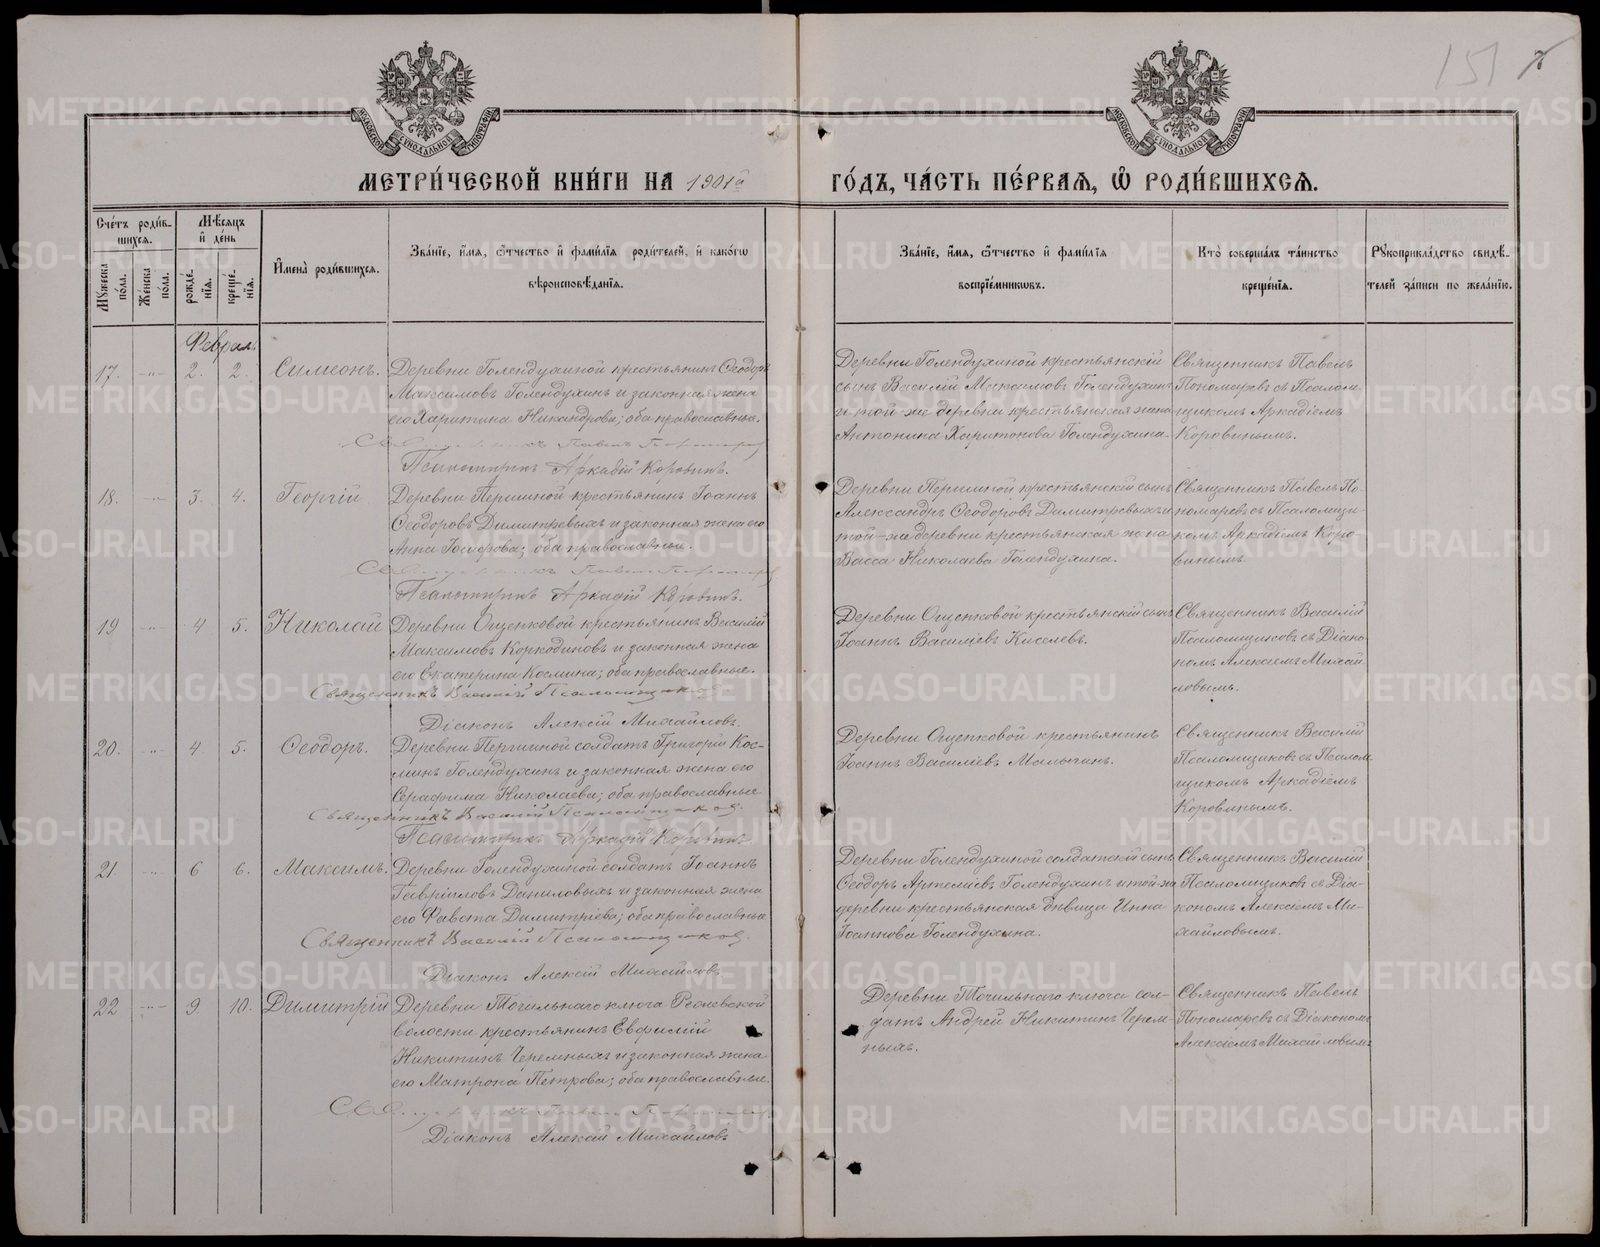 151
МЕТРИ́ЧЕСКОЙ КНИ́ГИ НА 1901й ГО́ДЪ, ЧА́СТЬ ПЕ́РВАЯ, Ѿ РОДИ́ВШИХСЯ.
Сче́тъ роди́в-
шихся.
Мꙋжеска по́ла.
Же́нска по́ла.
Мѣ́сяцъ и де́нь
рожде́нїя.
креще́нїя.
И҆мена̀ роди́вшихся.
Зва́нїе, и҆́мя, ѻ҆́тчество и҆ фами́лїя роди́телей, и҆ како́гѡ
вѣроисповѣ́данїя.
Зва́нїе, и҆́мя, ѻ҆́тчество и҆ фами́лїя
воспрїе́мникѡвъ.
Кто̀ соверша́лъ та́инство
креще́нїя.
Рꙋкоприкла́дство свидѣ́-
телей за́писи по жела́нїю.
Февраль
17. -"- 2. 2. Симеонъ.
Деревни Голендухиной крестьянинъ Ѳеодоръ
Максимовъ Голендухинъ и законная жена
его Харитина Никандрова; оба православные.
Священникъ Павелъ Пономаревъ
Псаломщикъ Аркадій Коровинъ.
Деревни Голендухиной крестьянскій
сынъ Василій Максимовъ Голендухинъ
и той-же деревни крестьянская жена
Антонина Харитонова Голендухина.
Священникъ Павелъ
Пономаревъ съ Псалом-
щикомъ Аркадіемъ
Коровинымъ.
18. -"- 3. 4. Георгій
Деревни Першиной крестьянинъ Іоаннъ
Ѳеодоровъ Димитревыхъ и законная жена его
Анна; оба православные.
Священникъ Павелъ Пономаревъ
Псаломщикъ Аркадій Коровинъ.
Деревни Першиной крестьянскій сынъ
Александръ Ѳеодоровъ Димитревыхъ и
той-же деревни крестьянская жена
Васса Николаева Голендухина.
Священникъ Павелъ По-
номаревъ съ Псаломщи-
комъ Аркадіемъ Коро-
винымъ.
19 -"- 4 5. Николай
Деревни Ощепковой крестьянинъ Василій
Максимовъ Коркодиновъ и законная жена
его Екатерина Космина; оба православные.
Священникъ Василій Псаломщиковъ
Діаконъ Алексій Михайловъ.
Деревни Ощепковой крестьянскій сынъ
Іоаннъ Василіевъ Киселевъ.
Священникъ Василій
Псаломщиковъ съ Діако-
номъ Алексіемъ Михай-
ловымъ.
20. -"- 4. 5. Ѳеодоръ.
Деревни Першиной солдатъ Григорій Кос-
минъ Голендухинъ и законная жена его
Серафима Николаева; оба православные
Священникъ Василій Псаломщиковъ.
Псаломщикъ Аркадій Коровинъ
Деревни Ощепковой крестьянинъ
Іоаннъ Василіевъ Малыгинъ.
Священникъ Василій
Псаломщиковъ съ Псалом-
щикомъ Аркадіемъ
Коровинымъ.
21 -"- 6 6. Максимъ.
Деревни Голендухиной солдатъ Іоаннъ
Гавріиловъ Даниловыхъ и законная жена
его Фавста Димитріева; оба православные
Священникъ Василій Псаломщиковъ.
Діаконъ Алексій Михайловъ
Деревни Голендухиной солдатскій сынъ
Ѳеодоръ Артеміевъ Голендухинъ и той-же
деревни крестьянская дѣвица Инна
Іоаннова Голендухина.
Священникъ Василій
Псаломщиковъ съ Діа-
кономъ Алексіемъ Ми-
хайловымъ.
22 -"- 9 10. Димитрій
Деревни Точильнаго ключа
волости крестьянинъ Евфимій
Никитинъ Черемныхъ и законная жена
его Матрона Петрова; оба православные.
Священникъ Павелъ Пономаревъ
Діаконъ Алексій Михайловъ
Деревни Точильнаго ключа сол-
датъ Андрей Никитинъ Черем-
ныхъ.
Священникъ Павелъ
Пономаревъ съ Діакономъ
Алексіемъ Михайловымъ
METRIKI.GASO-URAL.RU